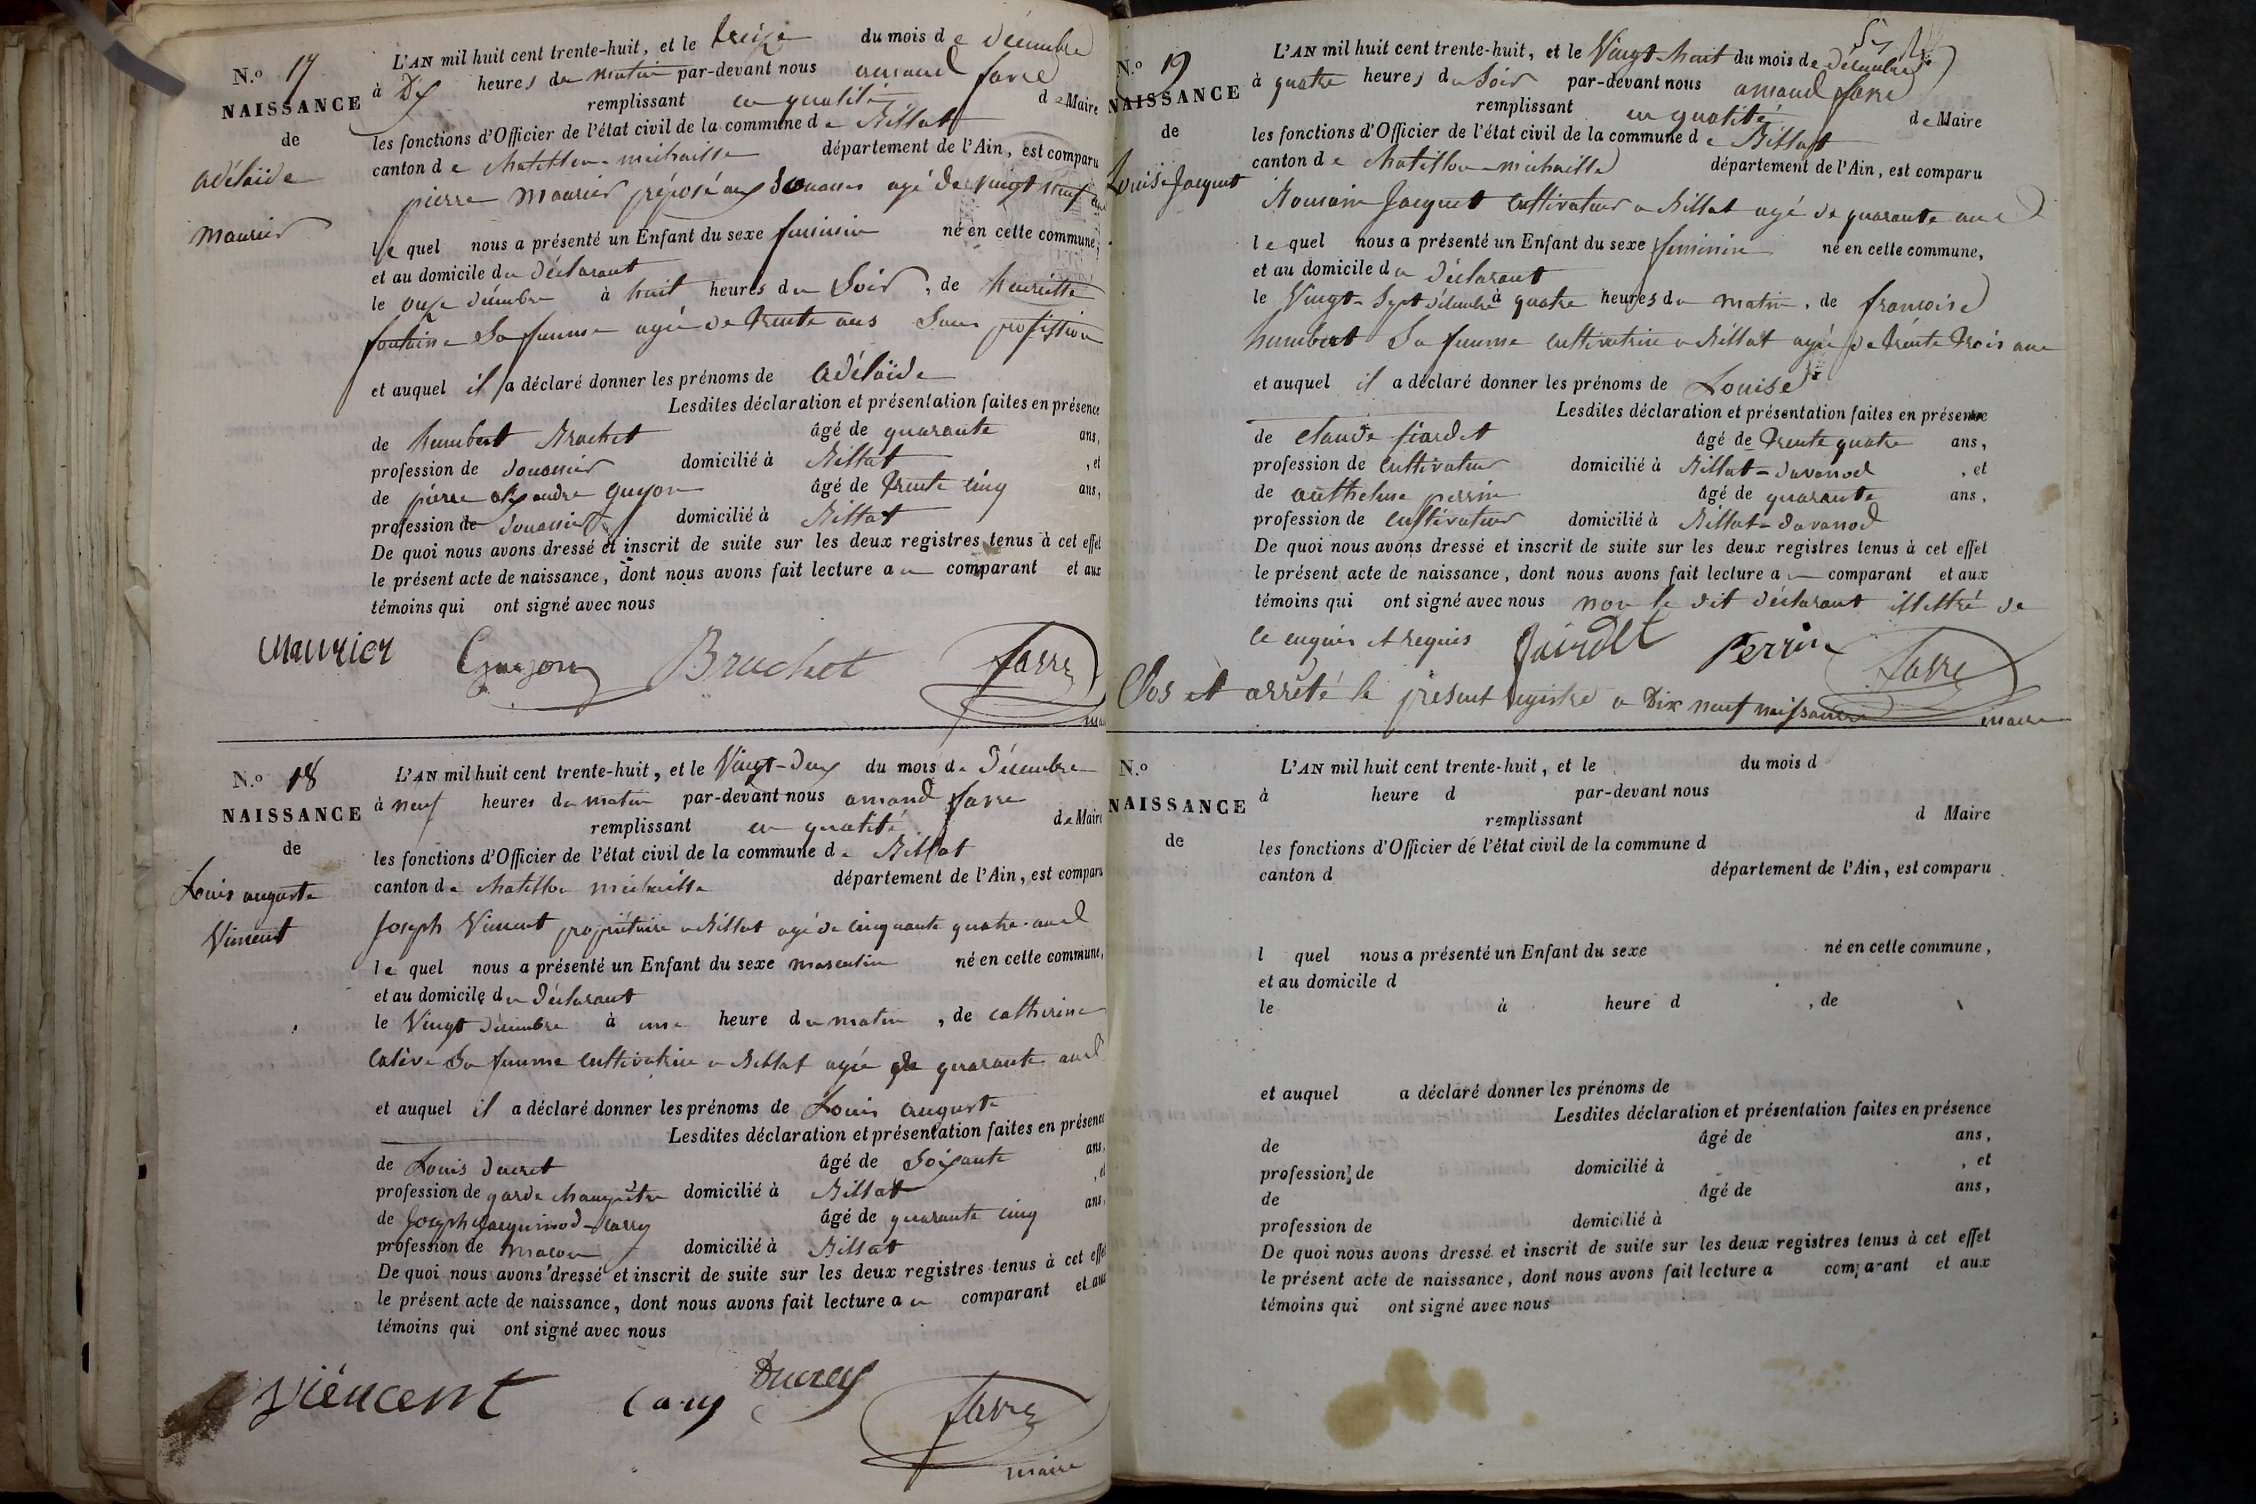 N.º 17
NAISSANCE
de
adélaïde
maurier
L'AN mil huit cent trente-huit, et le treize du mois de décembre
à Dix heures du matin par-devant nous amand favre
remplissant en qualité de Maire
les fonctions d'Officier de l'état civil de la commune de Billat
canton de chatillon-michaille département de l'Ain, est comparu
pierre maurier préposé aux Douanes agé de vingt neuf ans
le quel nous a présenté un Enfant du sexe feminin né en cette commune,
et au domicile du déclarant
le onze décembre à huit heures du Soir, de henriette
fontaine Sa femme agée de trente ans Sans profession
et auquel il a déclaré donner les prénoms de adélaïde
Lesdites déclaration et présentation faites en présence
de humbert Brachet âgé de quarante ans,
profession de douanier domicilié à Billat, et
de pierre alexandre guyon âgé de trente cinq ans,
profession de douanier domicilié à Billat
De quoi nous avons dressé et inscrit de suite sur les deux registres tenus à cet effet
le présent acte de naissance, dont nous avons fait lecture au comparant et aux
témoins qui ont signé avec nous
Maurier Guyon Brachet favre
maire
N.º 18
NAISSANCE
de
Louis auguste
Vincent
L'AN mil huit cent trente-huit, et le Vingt-deux du mois de Décembre
à neuf heures du matin par-devant nous amand favre
remplissant en qualité de Maire
les fonctions d'Officier de l'état civil de la commune de Billat
canton de chatillon michaille département de l'Ain, est comparu
Joseph Vincent propriétaire a Billat agé de cinquante quatre ans
le quel nous a présenté un Enfant du sexe masculin né en cette commune,
et au domicile du déclarant
le Vingt décembre à une heure du matin, de catherine
sa femme cultivatrice a Billat agée de quarante ans
et auquel il a déclaré donner les prénoms de Louis auguste
Lesdites déclaration et présentation faites en présence
de Louis ducret âgé de Soixante ans,
profession de garde champêtre domicilié à Billat, et
de Joseph Jacquinod-carry âgé de quarante cinq ans,
profession de macon domicilié à Billat
De quoi nous avons dressé et inscrit de suite sur les deux registres tenus à cet effet
le présent acte de naissance, dont nous avons fait lecture au comparant et aux
témoins qui ont signé avec nous
Viencent Cary Ducrey favre
maire
N.º 19
NAISSANCE
de
Louise Jacquet
L'AN mil huit cent trente-huit, et le Vingt-huit du mois de décembre
à quatre heures du Soir par-devant nous amand favre
remplissant en qualité de Maire
les fonctions d'Officier de l'état civil de la commune de Billat
canton de chatillon-michaille département de l'Ain, est comparu
Romain Jacquet Cultivateur a Billat agé de quarante ans
le quel nous a présenté un Enfant du sexe feminin né en cette commune,
et au domicile du déclarant
le Vingt-Sept décembre à quatre heures du matin, de francoise
humbert Sa femme cultivatrice a Billat agée de trente trois ans
et auquel il a déclaré donner les prénoms de Louise
Lesdites déclaration et présentation faites en présence
de claude âgé de trente quatre ans,
profession de Cultivateur domicilié à Billat-davanod, et
de anthelme perrin âgé de quarante ans,
profession de Cultivateur domicilié à Billat-davanod
De quoi nous avons dressé et inscrit de suite sur les deux registres tenus à cet effet
le présent acte de naissance, dont nous avons fait lecture au comparant et aux
témoins qui ont signé avec nous non le dit déclarant illettré de
ce enquis et requis Perrin favre
Clos et arrêté le présent registre a Dix neuf naissances maire
N.º
NAISSANCE
de
L'AN mil huit cent trente-huit, et le du mois d
à heure d par-devant nous
remplissant d Maire
les fonctions d'Officier de l'état civil de la commune d
canton d département de l'Ain, est comparu
l quel nous a présenté un Enfant du sexe né en cette commune,
et au domicile d
le à heure d , de
et auquel a déclaré donner les prénoms de
Lesdites déclaration et présentation faites en présence
de âgé de ans,
profession de domicilié à , et
de âgé de ans,
profession de domicilié à
De quoi nous avons dressé et inscrit de suite sur les deux registres tenus à cet effet
le présent acte de naissance, dont nous avons fait lecture a comparant et aux
témoins qui ont signé avec nous